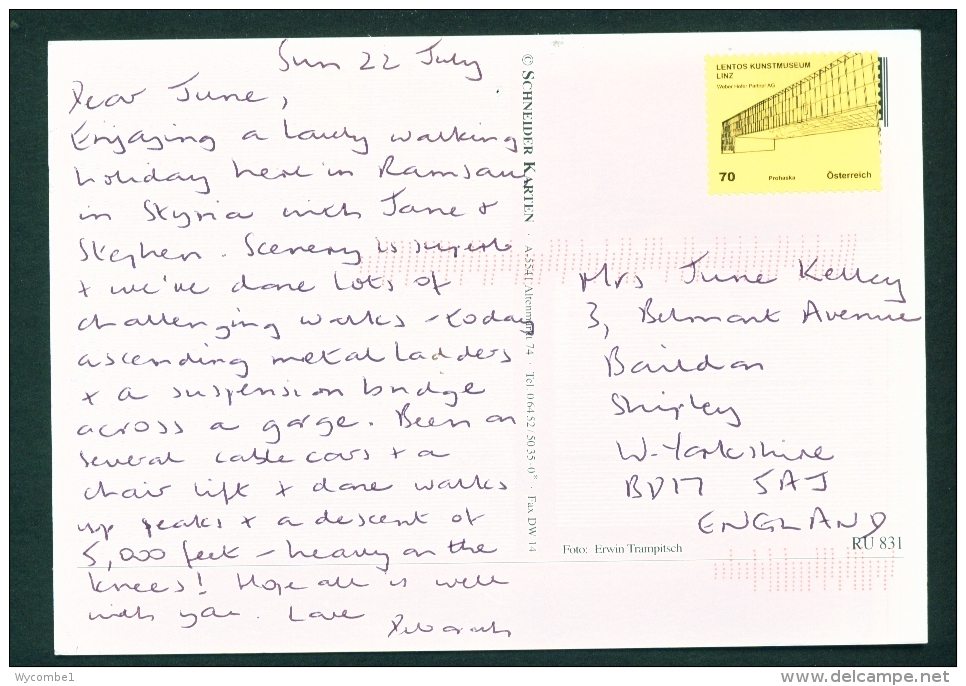 Sun 22 July
Dear June,
Enjoying a lovely walking
holiday here in Ramsau
in Styria with Jane &
Stephen. Scenery is superb
+ we've done lots of
challenging walks - today
ascending metal ladders
+ a suspension bridge
across a gorge. Been on
several cable cars + a
chair lift + done walks
up peaks + a descent of
5,000 feet - heavy on the
knees! Hope all is well
with you. Love
Deborah
© SCHNEIDER KARTEN · A-5541 Altenmarkt 74 · Tel. 06452/5035-0* · Fax DW 14
LENTOS KUNSTMUSEUM
LINZ
Weber Hofer Partner AG
70 Prohaska Österreich
Mrs June Kelley
3, Belmont Avenue
Baildon
Shipley
W. Yorkshire
BD17 5AJ
ENGLAND
Foto: Erwin Trampitsch
RU 831
Wycombe1
www.delcampe.net